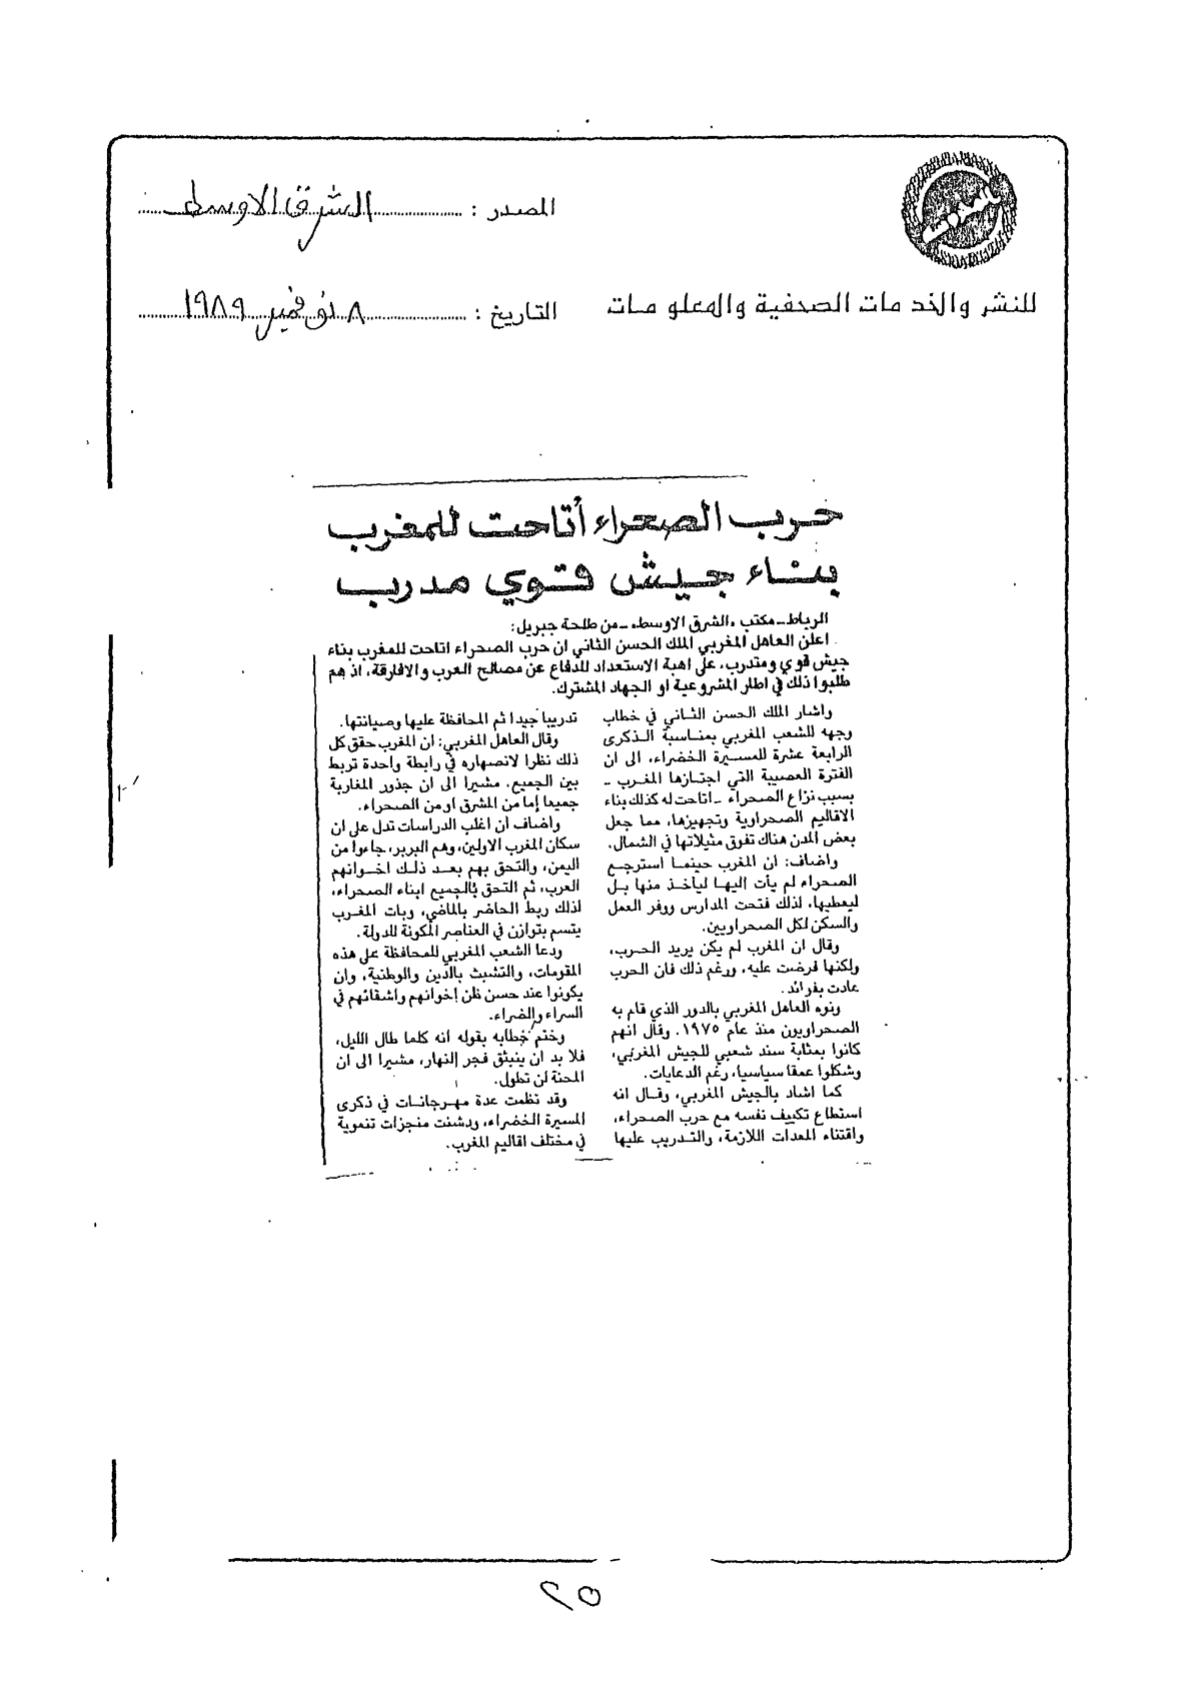 المصدر : الشرق الاوسط
للنشر والخدمات الصحفية والمعلومات
التاريخ : ٨ نوفمبر ١٩٨٩
حرب الصحراء أتاحت للمغرب
بناء جيش قوي مدرب
الرباط ـ مكتب «الشرق الاوسط» ـ من طلحة جبريل:
اعلن العاهل المغربي الملك الحسن الثاني ان حرب الصحراء اتاحت للمغرب بناء
جيش قوي ومتدرب، على اهبة الاستعداد للدفاع عن مصالح العرب والافارقة، اذ هم
طلبوا ذلك في اطار المشروعية او الجهاد المشترك.
واشار الملك الحسن الثاني في خطاب
وجهه للشعب المغربي بمناسبة الذكرى
الرابعة عشرة للمسيرة الخضراء، الى ان
الفترة العصيبة التي اجتازها المغرب ـ
بسبب نزاع الصحراء ـ اتاحت له كذلك بناء
الاقاليم الصحراوية وتجهيزها، مما جعل
بعض المدن هناك تفوق مثيلاتها في الشمال.
واضاف: ان المغرب حينما استرجع
الصحراء لم يأت إليها ليأخذ منها بل
ليعطيها، لذلك فتحت المدارس ووفر العمل
والسكن لكل الصحراويين.
وقال ان المغرب لم يكن يريد الحرب،
ولكنها فرضت عليه، ورغم ذلك فان الحرب
عادت بفوائد.
ونوه العاهل المغربي بالدور الذي قام به
الصحراويون منذ عام ١٩٧٥. وقال انهم
كانوا بمثابة سند شعبي للجيش المغربي،
وشكلوا عمقا سياسيا، رغم الدعايات.
كما اشاد بالجيش المغربي، وقال انه
استطاع تكييف نفسه مع حرب الصحراء،
واقتناء المعدات اللازمة، والتدريب عليها
تدريبا جيدا ثم المحافظة عليها وصيانتها.
وقال العاهل المغربي: ان المغرب حقق كل
ذلك نظرا لانصهاره في رابطة واحدة تربط
بين الجميع. مشيرا الى ان جذور المغاربة
جميعا إما من المشرق او من الصحراء.
واضاف أن اغلب الدراسات تدل على ان
سكان المغرب الاولين، وهم البربر، جاءوا من
اليمن، والتحق بهم بعد ذلك اخوانهم
العرب، ثم التحق بالجميع ابناء الصحراء،
لذلك ربط الحاضر بالماضي، وبات المغرب
يتسم بتوازن في العناصر المكونة للدولة.
ودعا الشعب المغربي للمحافظة على هذه
المقومات، والتشبث بالدين والوطنية، وان
يكونوا عند حسن ظن إخوانهم واشقائهم في
السراء والضراء.
وختم خطابه بقوله انه كلما طال الليل،
فلا بد ان ينبثق فجر النهار، مشيرا الى ان
المحنة لن تطول.
وقد نظمت عدة مهرجانات في ذكرى
المسيرة الخضراء، ودشنت منجزات تنموية
في مختلف اقاليم المغرب.
٢٥